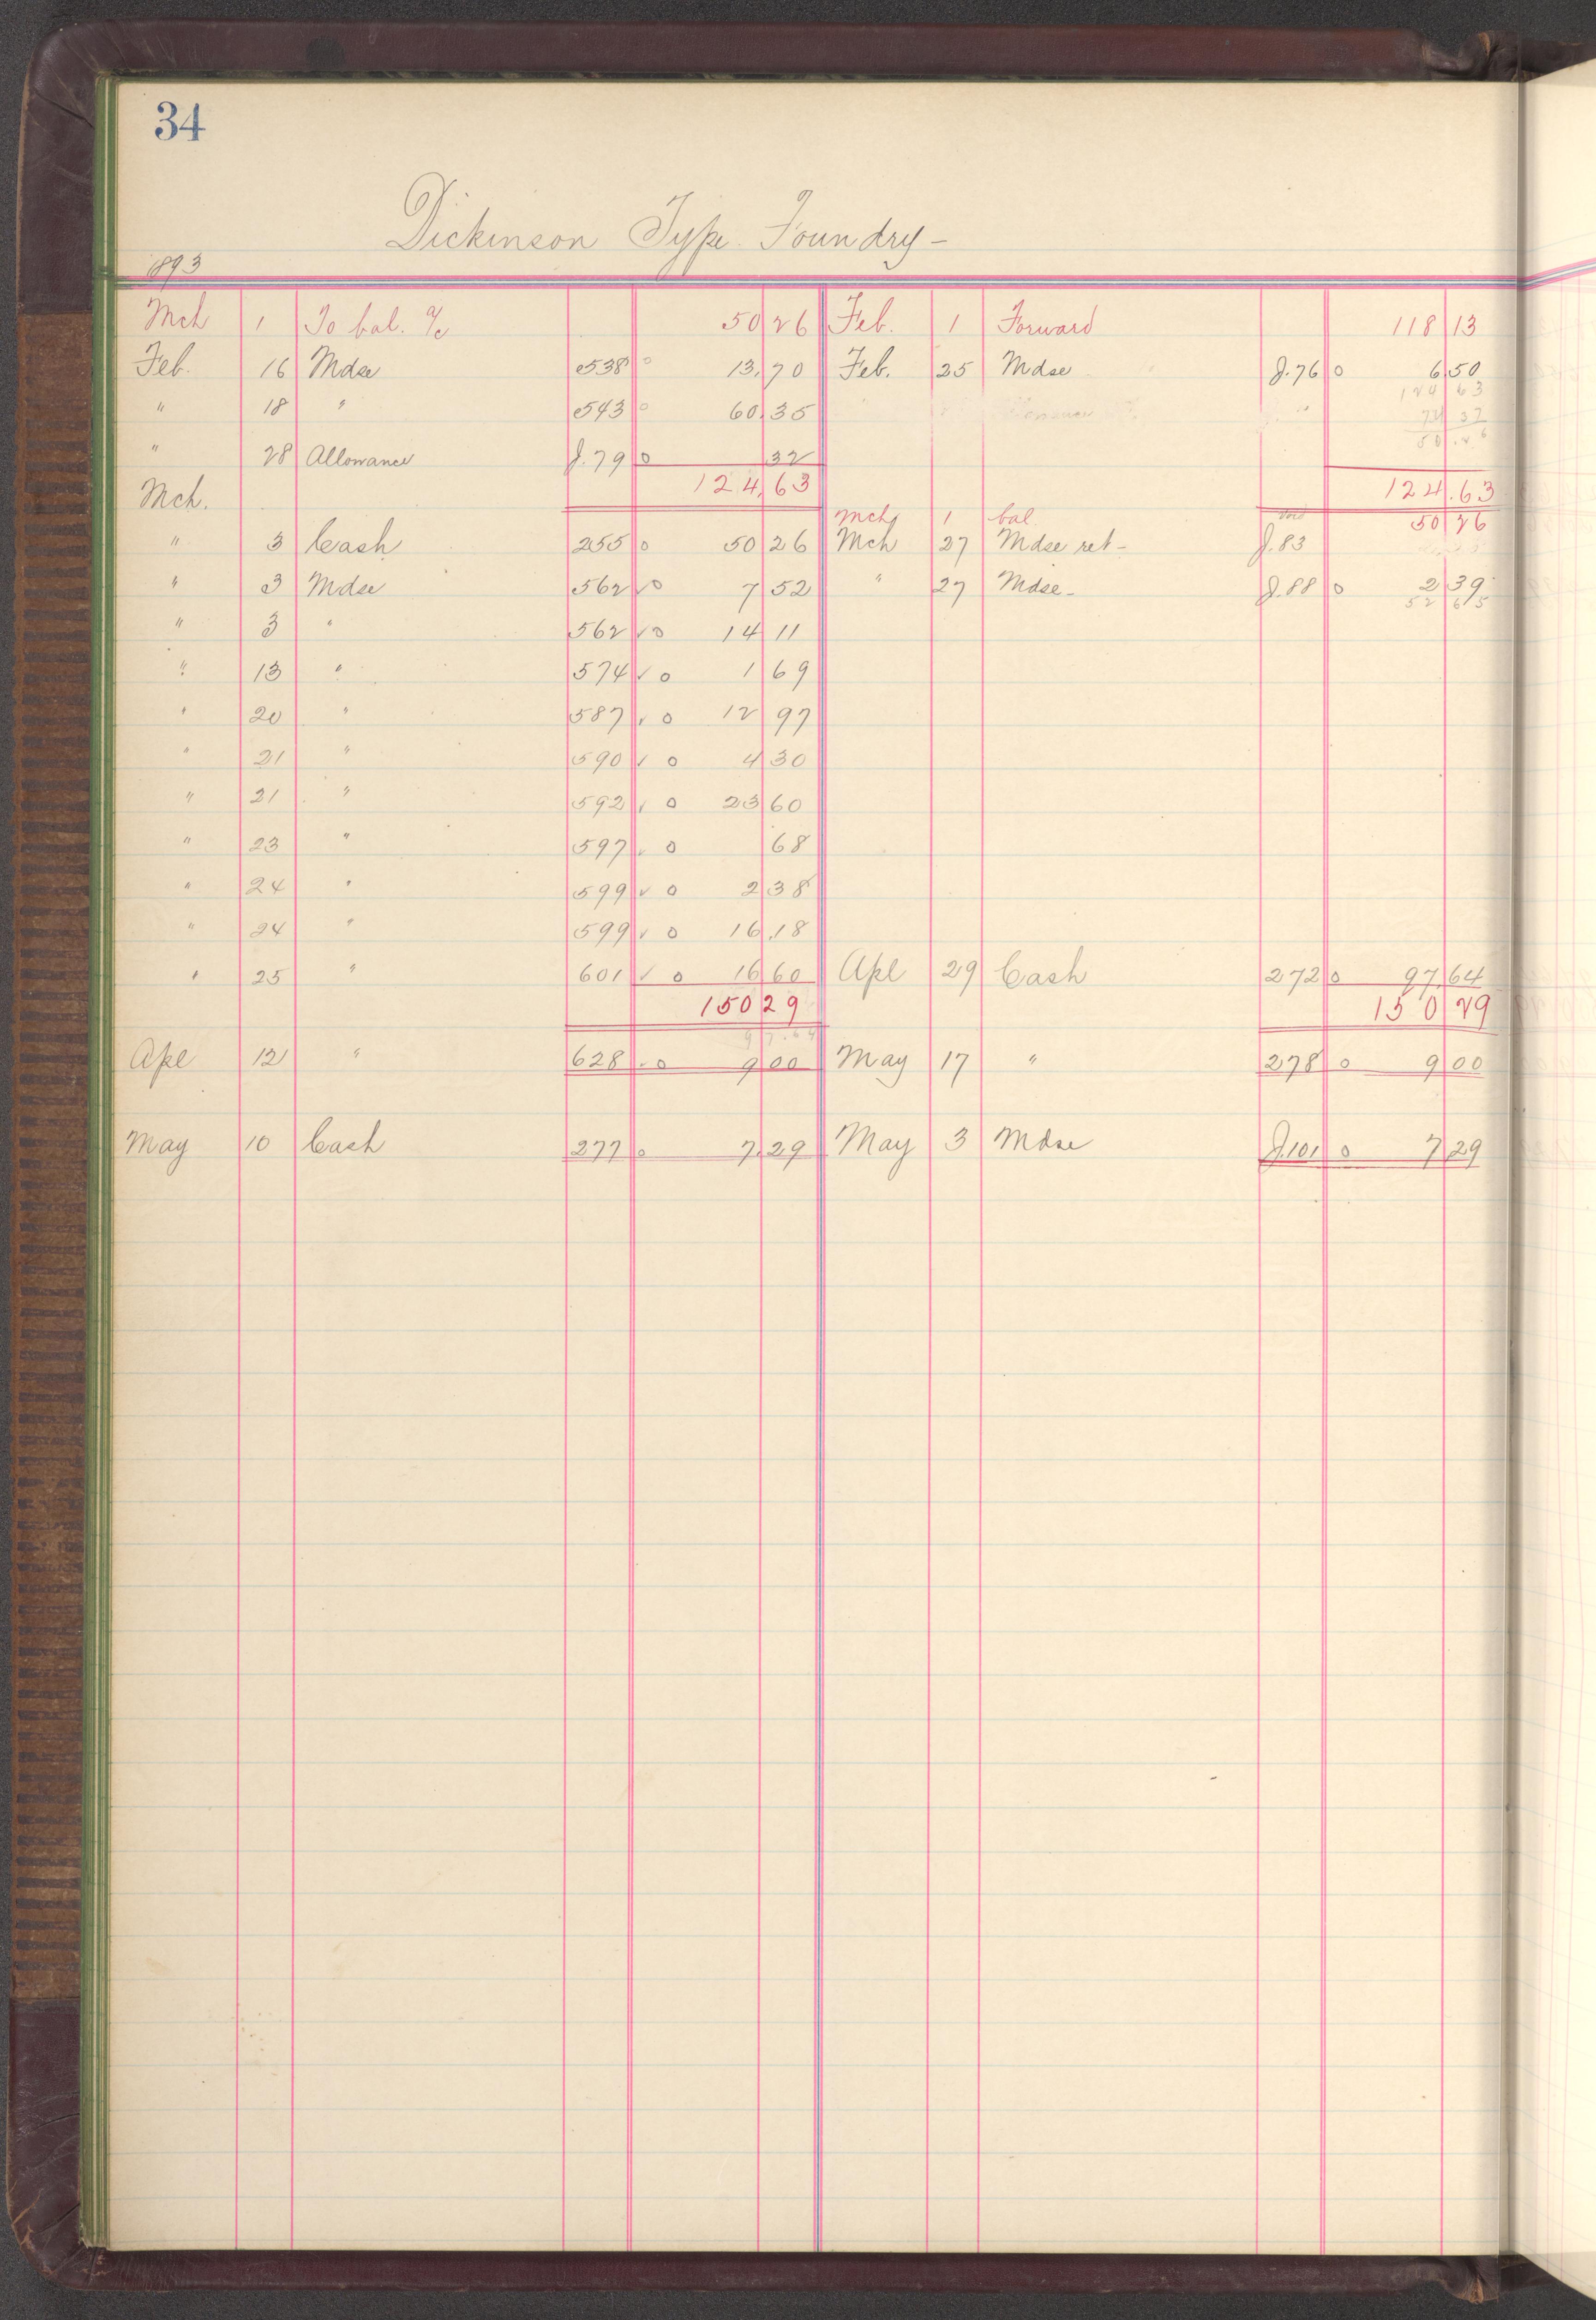 34
Dickinson Type Foundry -
1893
Mch 1 To bal. % 50 26 Feb. 1 Forward 118 13
Feb. 16 Mdse e538 0 13.70 Feb. 25 Mdse J.76 0 6 50
124 63
" 18 " e543 0 60.35
74 37
50.26
" 28 Allowance J.79 0 32
124.63 124.63
Mch.
Mch 1 bal. 50 26
" 3 Cash 255 0 50 26 Mch 27 Mdse ret - J.83
" 3 Mdse 562 √ 0 7 52 " 27 Mdse - J.88 0 2 39
52 65
" 3 " 562 √ 0 14 11
" 13 " 574 √ 0 1 69
" 20 " 587 √ 0 12 97
" 21 " 590 √ 0 4 30
" 21 " 592 √ 0 23 60
" 23 " 597 √ 0 68
" 24 " 599 √ 0 2 38
" 24 " 599 √ 0 16.18
" 25 " 601 √ 0 16 60 Apl 29 Cash 272 0 97.64
150 29 150 29
97.64
Apl 12 " 628 √ 0 9 00 May 17 " 278 0 9 00
May 10 Cash 277 0 7.29 May 3 Mdse J.101 0 7 29